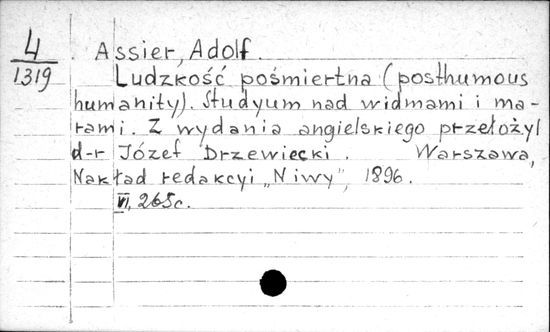 4
1319
Assier, Adolf.
Ludzkość pośmiertna (posthumous
humanity). Studyum nad widmami i ma-
rami. Z wydania angielskiego przełożył
d-r Józef Drzewiecki. Warszawa,
Nakład redakcyi „Niwy", 1896.
VI, 265 c.